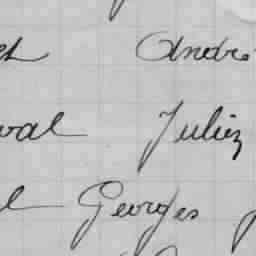 et André
val Julien
l Georges